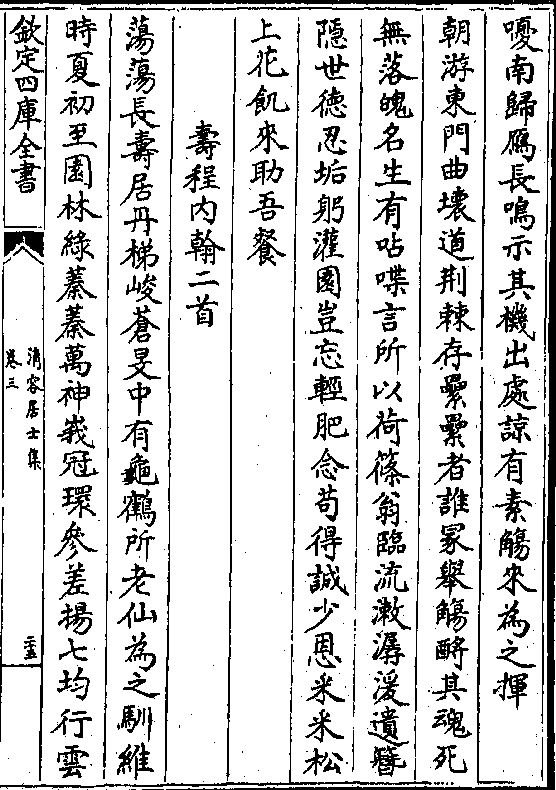 嚘南歸鴈長鳴示其機出處諒有素觴來為之揮
朝游東門曲壞道荆棘存纍纍者誰冢舉觴酹其魂死
無落魄名生有呫喋言所以荷篠翁臨流漱潺湲遺簪
隠世徳忍垢躬灌園豈忘輕肥念苟得誠少恩采采松
上花飢來助吾餐
壽程内翰二首
蕩蕩長壽居丹梯峻蒼旻中有龜鶴所老仙為之馴維
時夏初至園林綠蓁蓁萬神峩冠環參差揚七均行雲
欽定四庫全書
清容居士集
卷三
二五